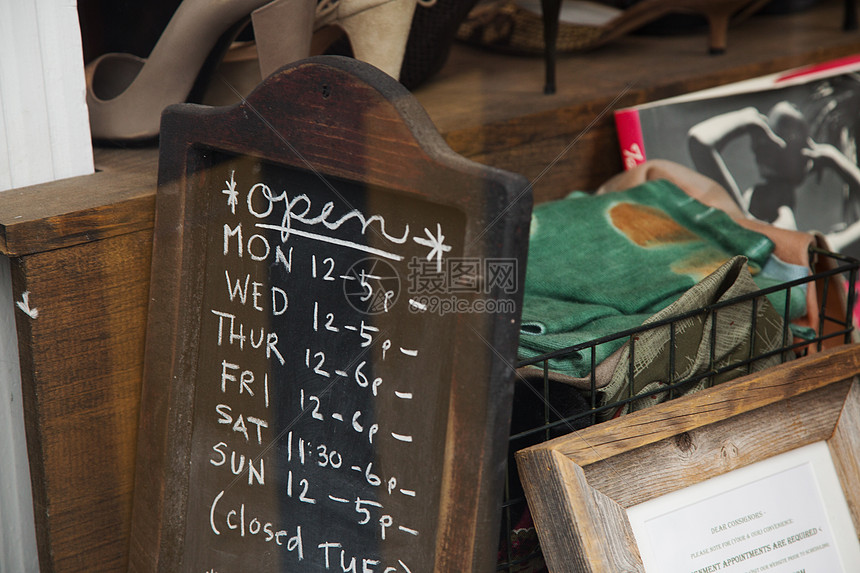 *open*
MON 12-5p-
WED 12-5p-
THUR 12-6p-
FRI 12-6p-
SAT 11:30-6p-
SUN 12-5p-
(closed TUES
摄图网
699pic.com
DEAR CONSIGNORS -
PLEASE NOTE: FOR YOUR & OUR CONVENIENCE,
NMENT APPOINTMENTS ARE REQUIRED
OUR WEBSITE PRIOR TO SCHEDULING